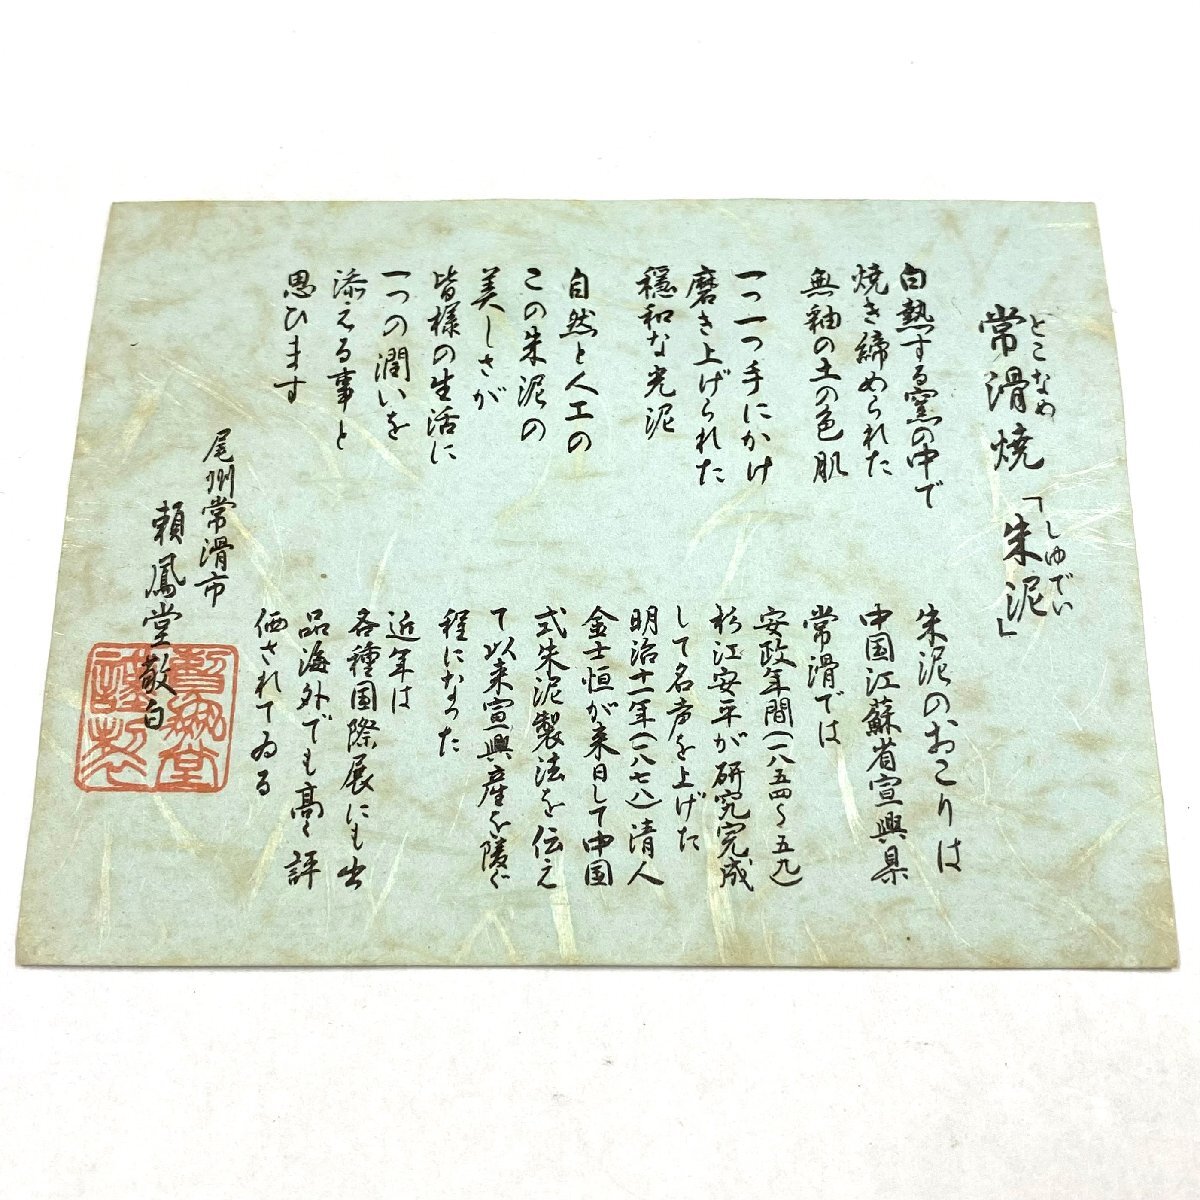 常滑焼「朱泥」
とこなめ
しゅでい
白熱する窯の中で
焼き締められた
無釉の土の色肌
一つ一つ手にかけ
磨き上げられた
穏和な光泥
自然と人工の
この朱泥の
美しさが
皆様の生活に
一つの潤いを
添える事と
思ひます
朱泥のおこりは
中国江蘇省宣興県
常滑では
安政年間(一八五四〜五九)
杉江安平が研究完成
して名声を上げた
明治十一年(一八七八)清人
金士恒が来日して中国
式朱泥製法を伝え
て以来宣興産を凌ぐ
程になった
近年は
各種国際展にも出
品海外でも高く評
価されてゐる
尾州常滑市
頼鳳堂敬白